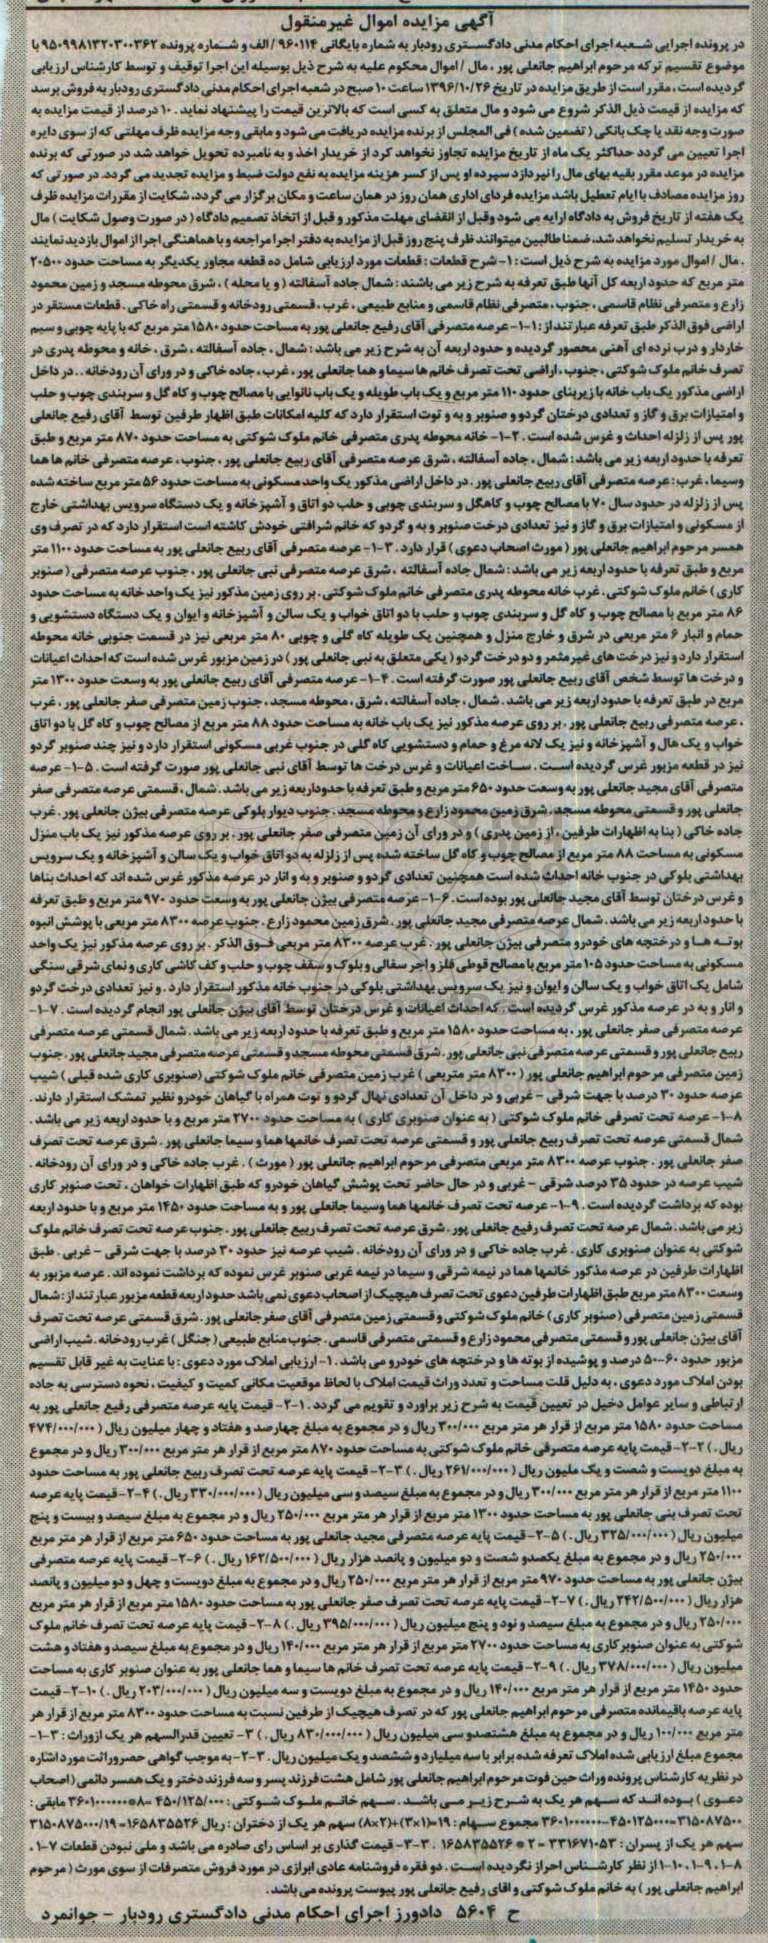 آگهی مزایده اموال غیرمنقول
در پرونده اجرایی شعبه اجرای احکام مدنی دادگستری رودبار به شماره بایگانی ۹۶۰۱۱۴ / الف و شماره پرونده ۹۵۰۹۹۸۱۳۲۰۳۰۰۳۶۲ با
موضوع تقسیم ترکه مرحوم ابراهیم جانعلی پور ، مال / اموال محکوم علیه به شرح ذیل بوسیله این اجرا توقیف و توسط کارشناس ارزیابی
گردیده است ، مقرر است از طریق مزایده در تاریخ ۱۳۹۶/۱۰/۲۶ ساعت ۱۰ صبح در شعبه اجرای احکام مدنی دادگستری رودبار به فروش برسد
که مزایده از قیمت ذیل الذکر شروع می شود و مال متعلق به کسی است که بالاترین قیمت را پیشنهاد نماید . ۱۰ درصد از قیمت مزایده به
صورت وجه نقد یا چک بانکی ( تضمین شده ) فی المجلس از برنده مزایده دریافت می شود و مابقی وجه مزایده ظرف مهلتی که از سوی دایره
اجرا تعیین می گردد حداکثر یک ماه از تاریخ مزایده تجاوز نخواهد کرد از خریدار اخذ و به نامبرده تحویل خواهد شد در صورتی که برنده
مزایده در موعد مقرر بقیه بهای مال را نپردازد سپرده او پس از کسر هزینه مزایده به نفع دولت ضبط و مزایده تجدید می گردد. در صورتی که
روز مزایده مصادف با ایام تعطیل باشد مزایده فردای اداری همان روز در همان ساعت و مکان برگزار می گردد. شکایت از مقررات مزایده ظرف
یک هفته از تاریخ فروش به دادگاه ارایه می شود وقبل از انقضای مهلت مذکور و قبل از اتخاذ تصمیم دادگاه ( در صورت وصول شکایت ) مال
به خریدار تسلیم نخواهد شد، ضمنا طالبین میتوانند ظرف پنج روز قبل از مزایده به دفتر اجرا مراجعه و با هماهنگی اجرا از اموال بازدید نمایند
. مال / اموال مورد مزایده به شرح ذیل است : ۱- شرح قطعات : قطعات مورد ارزیابی شامل ده قطعه مجاور یکدیگر به مساحت حدود ۲۰۵۰۰
متر مربع که حدود اربعه کل آنها طبق تعرفه به شرح زیر می باشند : شمال جاده آسفالته ( و یا محله ) ، شرق محوطه مسجد و زمین محمود
زارع و متصرفی نظام قاسمی ، جنوب ، متصرفی نظام قاسمی و منابع طبیعی ، غرب ، قسمتی رودخانه و قسمتی راه خاکی . قطعات مستقر در
اراضی فوق الذکر طبق تعرفه عبارتند از : ۱-۱- عرصه متصرفی آقای رفیع جانعلی پور به مساحت حدود ۱۵۸۰ متر مربع که با پایه چوبی و سیم
خاردار و درب نرده ای آهنی محصور گردیده و حدود اربعه آن به شرح زیر می باشد : شمال ، جاده آسفالته ، شرق ، خانه و محوطه پدری در
تصرف خانم ملوک شوکتی ، جنوب ، اراضی تحت تصرف خانم ها سیما و هما جانعلی پور ، غرب ، جاده خاکی و در ورای آن رودخانه . . در داخل
اراضی مذکور یک باب خانه با زیربنای حدود ۱۱۰ متر مربع و یک باب طویله و یک باب نانوایی با مصالح چوب و کاه گل و سربندی چوب و حلب
و امتیازات برق و گاز و تعدادی درختان گردو و صنوبر و به و توت استقرار دارد که کلیه امکانات طبق اظهار طرفین توسط آقای رفیع جانعلی
پور پس از زلزله احداث و غرس شده است . ۲-۱- خانه محوطه پدری متصرفی خانم ملوک شوکتی به مساحت حدود ۸۷۰ متر مربع و طبق
تعرفه با حدود اربعه زیر می باشد : شمال ، جاده آسفالته ، شرق عرصه متصرفی آقای ربیع جانعلی پور ، جنوب ، عرصه متصرفی خانم ها هما
وسیما ، غرب : عرصه متصرفی آقای ربیع جانعلی پور . در داخل اراضی مذکور یک واحد مسکونی به مساحت حدود ۵۶ متر مربع ساخته شده
پس از زلزله در حدود سال ۷۰ با مصالح چوب و کاهگل و سربندی چوبی و حلب دو اتاق و آشپزخانه و یک دستگاه سرویس بهداشتی خارج
از مسکونی و امتیازات برق و گاز و نیز تعدادی درخت صنوبر و به و گردو که خانم شرافتی خودش کاشته است استقرار دارد که در تصرف وی
همسر مرحوم ابراهیم جانعلی پور ( مورث اصحاب دعوی ) قرار دارد . ۳-۱- عرصه متصرفی آقای ربیع جانعلی پور به مساحت حدود ۱۱۰۰ متر
مربع و طبق تعرفه با حدود اربعه زیر می باشد : شمال جاده آسفالته ، شرق عرصه متصرفی نبی جانعلی پور ، جنوب عرصه متصرفی ( صنوبر
کاری ) خانم ملوک شوکتی . غرب خانه محوطه پدری متصرفی خانم ملوک شوکتی . بر روی زمین مذکور نیز یک واحد خانه به مساحت حدود
۸۶ متر مربع با مصالح چوب و کاه گل و سربندی چوب و حلب با دو اتاق خواب و یک سالن و آشپزخانه و ایوان و یک دستگاه دستشویی و
حمام و انبار ۶ متر مربعی در شرق و خارج منزل و همچنین یک طویله کاه گلی و چوبی ۸۰ متر مربعی نیز در قسمت جنوبی خانه محوطه
استقرار دارد و نیز درخت های غیر مثمر و دو درخت گردو ( یکی متعلق به نبی جانعلی پور ) در زمین مزبور غرس شده است که احداث اعیانات
و درخت ها توسط شخص آقای ربیع جانعلی پور صورت گرفته است . ۴-۱- عرصه متصرفی آقای ربیع جانعلی پور به وسعت حدود ۱۳۰۰ متر
مربع در طبق تعرفه با حدود اربعه زیر می باشد . شمال ، جاده آسفالته ، شرق ، محوطه مسجد ، جنوب زمین متصرفی صفر جانعلی پور ، غرب
، عرصه متصرفی ربیع جانعلی پور . بر روی عرصه مذکور نیز یک باب خانه به مساحت حدود ۸۸ متر مربع از مصالح چوب و کاه گل با دو اتاق
خواب و یک هال و آشپزخانه و نیز یک لانه مرغ و حمام و دستشویی کاه گلی در جنوب غربی مسکونی استقرار دارد و نیز چند صنوبر گردو
نیز در قطعه مزبور غرس گردیده است . ساخت اعیانات و غرس درخت ها توسط آقای نبی جانعلی پور صورت گرفته است . ۵-۱- عرصه
متصرفی آقای مجید جانعلی پور به وسعت حدود ۶۵۰ متر مربع و طبق تعرفه با حدوداربعه زیر می باشد . شمال ، قسمتی عرصه متصرفی صفر
جانعلی پور و قسمتی محوطه مسجد . شرق زمین محمود زارع و محوطه مسجد . جنوب دیوار بلوکی عرصه متصرفی بیژن جانعلی پور . غرب
جاده خاکی ( بنا به اظهارات طرفین ، از زمین پدری ) و در ورای آن زمین متصرفی صفر جانعلی پور . بر روی عرصه مذکور نیز یک باب منزل
مسکونی به مساحت ۸۸ متر مربع از مصالح چوب و کاه گل ساخته شده پس از زلزله به دو اتاق خواب و یک سالن و آشپزخانه و یک سرویس
بهداشتی بلوکی در جنوب خانه احداث شده است همچنین تعدادی گردو و صنوبر و به و انار در عرصه مذکور غرس شده اند که احداث بناها
و غرس درختان توسط آقای مجید جانعلی پور بوده است . ۶-۱- عرصه متصرفی بیژن جانعلی پور به وسعت حدود ۹۷۰ متر مربع و طبق تعرفه
با حدود اربعه زیر می باشد . شمال عرصه متصرفی مجید جانعلی پور . شرق زمین محمود زارع . جنوب عرصه ۸۳۰۰ متر مربعی با پوشش انبوه
بوته ها و درختچه های خودرو متصرفی بیژن جانعلی پور . غرب عرصه ۸۳۰۰ متر مربعی فوق الذکر . بر روی عرصه مذکور نیز یک واحد
مسکونی به مساحت حدود ۱۰۵ متر مربع با مصالح قوطی فلز و اجر سفالی و بلوک و سقف چوب و حلب و کف کاشی کاری و نمای شرقی سنگی
شامل یک اتاق خواب و یک سالن و ایوان و نیز یک سرویس بهداشتی بلوکی در جنوب خانه مذکور استقرار دارد . و نیز تعدادی درخت گردو
و انار و به در عرصه مذکور غرس گردیده است . که احداث اعیانات و غرس درختان توسط آقای بیژن جانعلی پور انجام گردیده است . ۷-۱-
عرصه متصرفی صفر جانعلی پور ، به مساحت حدود ۱۵۸۰ متر مربع و طبق تعرفه با حدود اربعه زیر می باشد . شمال قسمتی عرصه متصرفی
ربیع جانعلی پور و قسمتی عرصه متصرفی نبی جانعلی پور . شرق قسمتی محوطه مسجد و قسمتی عرصه متصرفی مجید جانعلی پور . جنوب
زمین متصرفی مرحوم ابراهیم جانعلی پور ( ۸۳۰۰ متر متربعی ) غرب زمین متصرفی خانم ملوک شوکتی (صنوبری کاری شده قبلی ) شیب
عرصه حدود ۳۰ درصد با جهت شرقی - غربی و در داخل آن تعدادی نهال گردو و توت همراه با گیاهان خودرو نظیر تمشک استقرار دارند .
۸-۱- عرصه تحت تصرفی خانم ملوک شوکتی ( به عنوان صنوبری کاری ) به مساحت حدود ۲۷۰۰ متر مربع و با حدود اربعه زیر می باشد .
شمال قسمتی عرصه تحت تصرف ربیع جانعلی پور و قسمتی عرصه تحت تصرف خانمها هما و سیما جانعلی پور . شرق عرصه تحت تصرف
صفر جانعلی پور . جنوب عرصه ۸۳۰۰ متر مربعی متصرفی مرحوم ابراهیم جانعلی پور ( مورث ) . غرب جاده خاکی و در ورای آن رودخانه .
شیب عرصه در حدود ۳۵ درصد شرقی - غربی و در حال حاضر تحت پوشش گیاهان خودرو که طبق اظهارات خواهان ، تحت صنوبر کاری
بوده که برداشت گردیده است . ۹-۱- عرصه تحت تصرف خانمها هما وسیما جانعلی پور و به مساحت حدود ۱۴۵۰ متر مربع و با حدود اربعه
زیر می باشد . شمال عرصه تحت تصرف رفیع جانعلی پور . شرق عرصه تحت تصرف ربیع جانعلی پور . جنوب عرصه تحت تصرف خانم ملوک
شوکتی به عنوان صنوبری کاری . غرب جاده خاکی و در ورای آن رودخانه . شیب عرصه نیز حدود ۳۰ درصد با جهت شرقی - غربی . طبق
اظهارات طرفین در عرصه مذکور خانمها هما در نیمه شرقی و سیما در نیمه غربی صنوبر غرس نموده که برداشت نموده اند . عرصه مزبور به
وسعت ۸۳۰۰ متر مربع طبق اظهارات طرفین دعوی تحت تصرف هیچیک از اصحاب دعوی نمی باشد حدود اربعه قطعه مزبور عبارتند از : شمال
قسمتی زمین متصرفی ( صنوبر کاری ) خانم ملوک شوکتی و قسمتی زمین متصرفی آقای صفر جانعلی پور . شرق قسمتی عرصه تحت تصرف
آقای بیژن جانعلی پور و قسمتی متصرفی محمود زارع و قسمتی متصرفی قاسمی . جنوب منابع طبیعی ( جنگل ) غرب رودخانه . شیب اراضی
مزبور حدود ۶۰-۵۰ درصد و پوشیده از بوته ها و درختچه های خودرو می باشد . ۱- ارزیابی املاک مورد دعوی : با عنایت به غیر قابل تقسیم
بودن املاک مورد دعوی ، به دلیل قلت مساحت و تعدد وراث قیمت املاک با لحاظ موقعیت مکانی کمیت و کیفیت ، نحوه دسترسی به جاده
ارتباطی و سایر عوامل دخیل در تعیین قیمت به شرح زیر براورد و تقویم می گردد . ۱-۲- قیمت پایه عرصه متصرفی رفیع جانعلی پور به
مساحت حدود ۱۵۸۰ متر مربع از قرار هر متر مربع ۳۰۰/۰۰۰ ریال و در مجموع به مبلغ چهارصد و هفتاد و چهار میلیون ریال ( ۴۷۴/۰۰۰/۰۰۰
ریال . ) ۲-۲- قیمت پایه عرصه متصرفی خانم ملوک شوکتی به مساحت حدود ۸۷۰ متر مربع از قرار هر متر مربع ۳۰۰/۰۰۰ ریال و در مجموع
به مبلغ دویست و شصت و یک ملیون ریال ( ۲۶۱/۰۰۰/۰۰۰ ریال . ) ۳-۲- قیمت پایه عرصه تحت تصرف ربیع جانعلی پور به مساحت حدود
۱۱۰۰ متر مربع از قرار هر متر مربع ۳۰۰/۰۰۰ ریال و در مجموع به مبلغ سیصد و سی میلیون ریال ( ۳۳۰/۰۰۰/۰۰۰ ریال . ) ۴-۲- قیمت پایه عرصه
تحت تصرف بنی جانعلی پور به مساحت حدود ۱۳۰۰ متر مربع از قرار هر متر مربع ۲۵۰/۰۰۰ ریال و در مجموع به مبلغ سیصد و بیست و پنج
میلیون ریال ( ۳۲۵/۰۰۰/۰۰۰ ریال . ) ۵-۲- قیمت پایه عرصه متصرفی مجید جانعلی پور به مساحت حدود ۶۵۰ متر مربع از قرار هر متر مربع
۲۵۰/۰۰۰ ریال و در مجموع به مبلغ یکصدو شصت و دو میلیون و پانصد هزار ریال ( ۱۶۲/۵۰۰/۰۰۰ ریال . ) ۶-۲- قیمت پایه عرصه متصرفی
بیژن جانعلی پور به مساحت حدود ۹۷۰ متر مربع از قرار هر متر مربع ۲۵۰/۰۰۰ ریال و در مجموع به مبلغ دویست و چهل و دو میلیون و پانصد
هزار ریال ( ۲۴۲/۵۰۰/۰۰۰ ریال . ) ۷-۲- قیمت پایه عرصه تحت تصرف صفر جانعلی پور به مساحت حدود ۱۵۸۰ متر مربع از قرار هر متر مربع
۲۵۰/۰۰۰ ریال و در مجموع به مبلغ سیصد و نود و پنج میلیون ریال ( ۳۹۵/۰۰۰/۰۰۰ ریال . ) ۸-۲- قیمت پایه عرصه تحت تصرف خانم ملوک
شوکتی به عنوان صنوبر کاری به مساحت حدود ۲۷۰۰ متر مربع از قرار هر متر مربع ۱۴۰/۰۰۰ ریال و در مجموع به مبلغ سیصد و هفتاد و هشت
میلیون ریال ( ۳۷۸/۰۰۰/۰۰۰ ریال . ) ۹-۲- قیمت پایه عرصه تحت تصرف خانم ها سیما و هما جانعلی پور به عنوان صنوبر کاری به مساحت
حدود ۱۴۵۰ متر مربع از قرار هر متر مربع ۱۴۰/۰۰۰ ریال و در مجموع به مبلغ دویست و سه میلیون ریال ( ۲۰۳/۰۰۰/۰۰۰ ریال . ) ۱۰-۲- قیمت
پایه عرصه باقیمانده متصرفی مرحوم ابراهیم جانعلی پور که در تصرف هیچیک از طرفین نسبت به مساحت حدود ۸۳۰۰ متر مربع از قرار هر
متر مربع ۱۰۰/۰۰۰ ریال و در مجموع به مبلغ هشتصدو سی میلیون ریال ( ۸۳۰/۰۰۰/۰۰۰ ریال . ) ۳- تعیین قدرالسهم هر یک ازوراث : ۳-۱-
مجموع مبلغ ارزیابی شده املاک تعرفه شده برابر با سه میلیارد و ششصد و یک میلیون ریال . ۳-۲- به موجب گواهی حصروراثت مورد اشاره
در نظریه کارشناس پرونده وراث حین فوت مرحوم ابراهیم جانعلی پور شامل هشت فرزند پسر و سه فرزند دختر و یک همسر دائمی ( اصحاب
دعوی ) بوده اند که سهم هر یک به شرح زیر می باشد . سهم خانم ملوک شوکتی : ۴۵۰/۱۲۵/۰۰۰ =۸÷۳۶۰۱۰۰۰۰۰۰ مابقی :
۳۱۵۰۸۷۵۰۰=۴۵۰۱۲۵۰۰۰-۳۶۰۱۰۰۰۰۰۰ مجموع سهام : ۱۹=(۱×۳)+(۲×۸) سهم هر یک از دختران : ریال ۱۶۵۸۳۵۵۲۶= ۳۱۵۰۸۷۵۰۰۰/۱۹
سهم هر یک از پسران : ۳۳۱۶۷۱۰۵۳ = ۲ * ۱۶۵۸۳۵۵۲۶ . ۳-۳- قیمت گذاری بر اساس رای صادره می باشد و ملی نبودن قطعات ۷-۱ ،
۸-۱ ، ۹-۱ ، ۱۰-۱ از نظر کارشناس احراز نگردیده است . دو فقره فروشنامه عادی ابرازی در مورد فروش متصرفات از سوی مورث ( مرحوم
ابراهیم جانعلی پور ) به خانم ملوک شوکتی و اقای رفیع جانعلی پور پیوست پرونده می باشد .
ح ۵۶۰۴ دادورز اجرای احکام مدنی دادگستری رودبار - جوانمرد